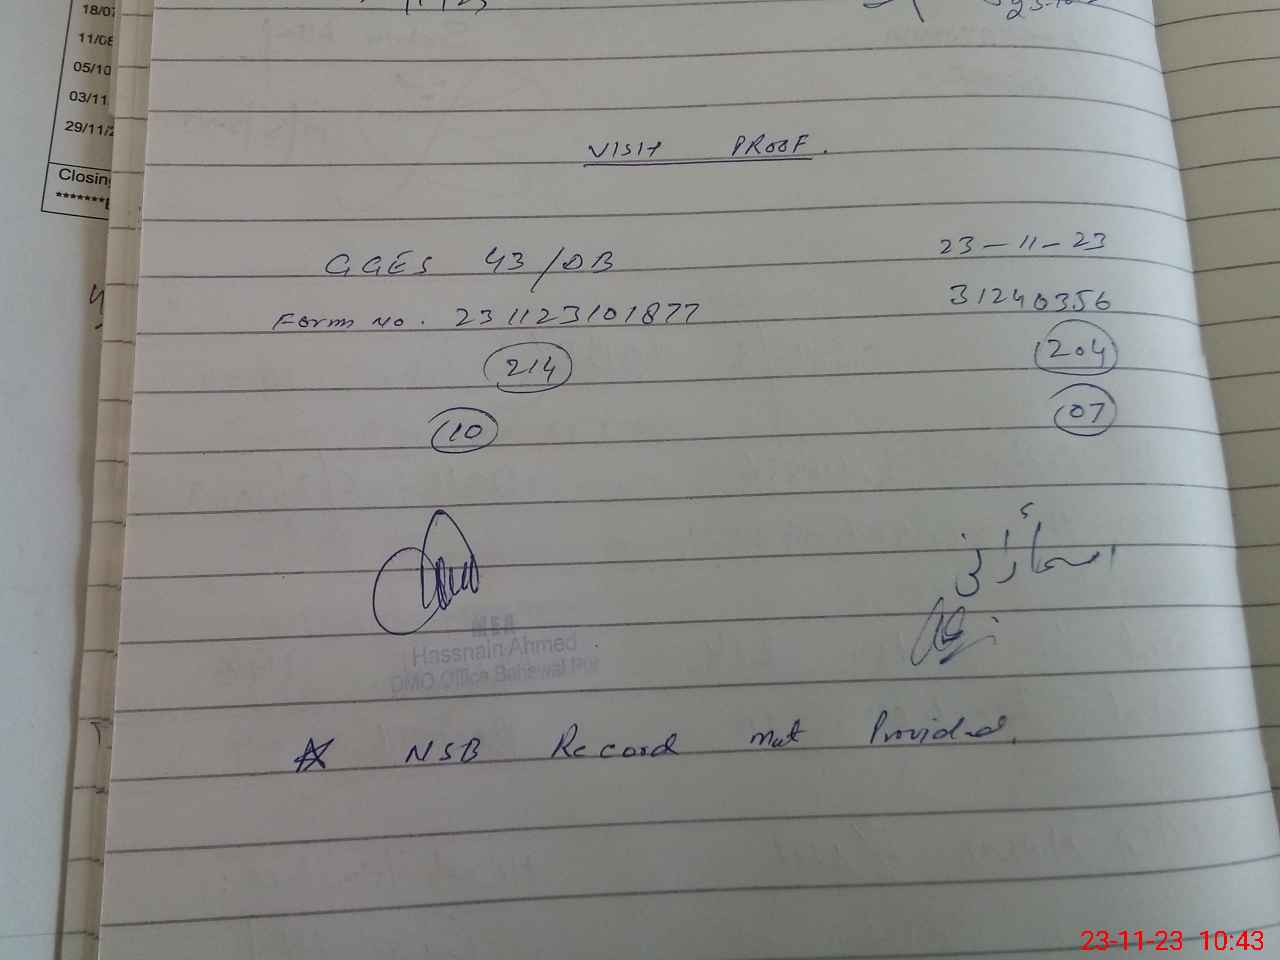 18/07
11/08
05/10
03/11
29/11/2
Closing
*******E
VISIT PROOF.
GGES 43/DB 23-11-23
Form No. 231123101877 31240356
214 204
10 07
MEA
Hassnain Ahmed
DMO Office Bahawal Pur
☆ NSB Record not Provided.
23-11-23 10:43